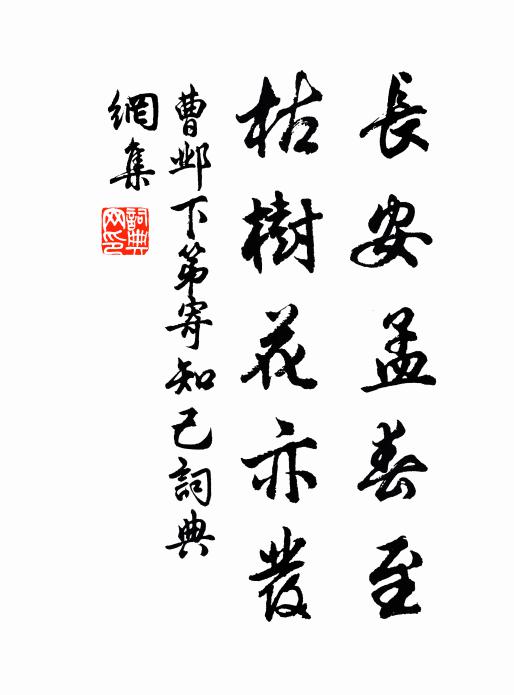 長安孟春至
枯樹花亦發
曹邺下第寄知己詞典
網集
詞典
网印